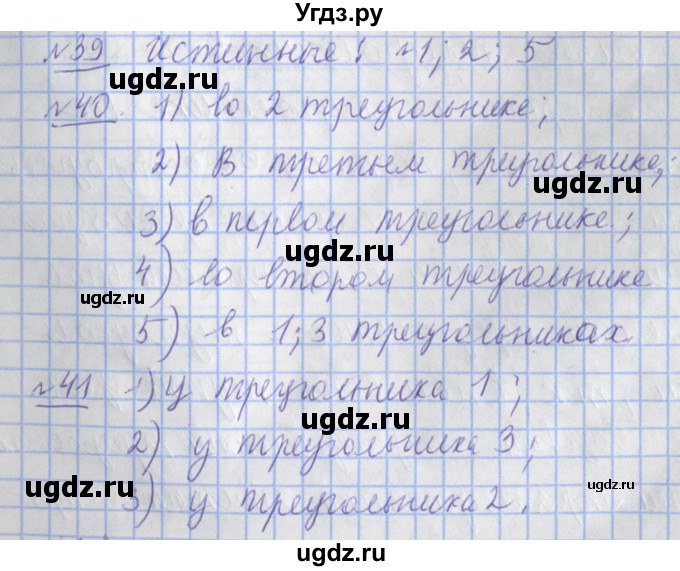 Угдз.ру
№39 Истинные: №1; 2; 5
ugdz.ru ugdz.ru
№40. 1) во 2 треугольнике;
2) В третьем треугольнике;
ugdz.ru
3) в первом треугольнике;
ugdz.ru
4) во втором треугольнике
ugdz.ru
5) в 1; 3 треугольниках
ugdz.ru
№41 1) у треугольника 1;
ugdz.ru
2) у треугольника 3;
ugdz.ru ugdz.ru ugdz.ru
3) у треугольника 2.
ugdz.ru